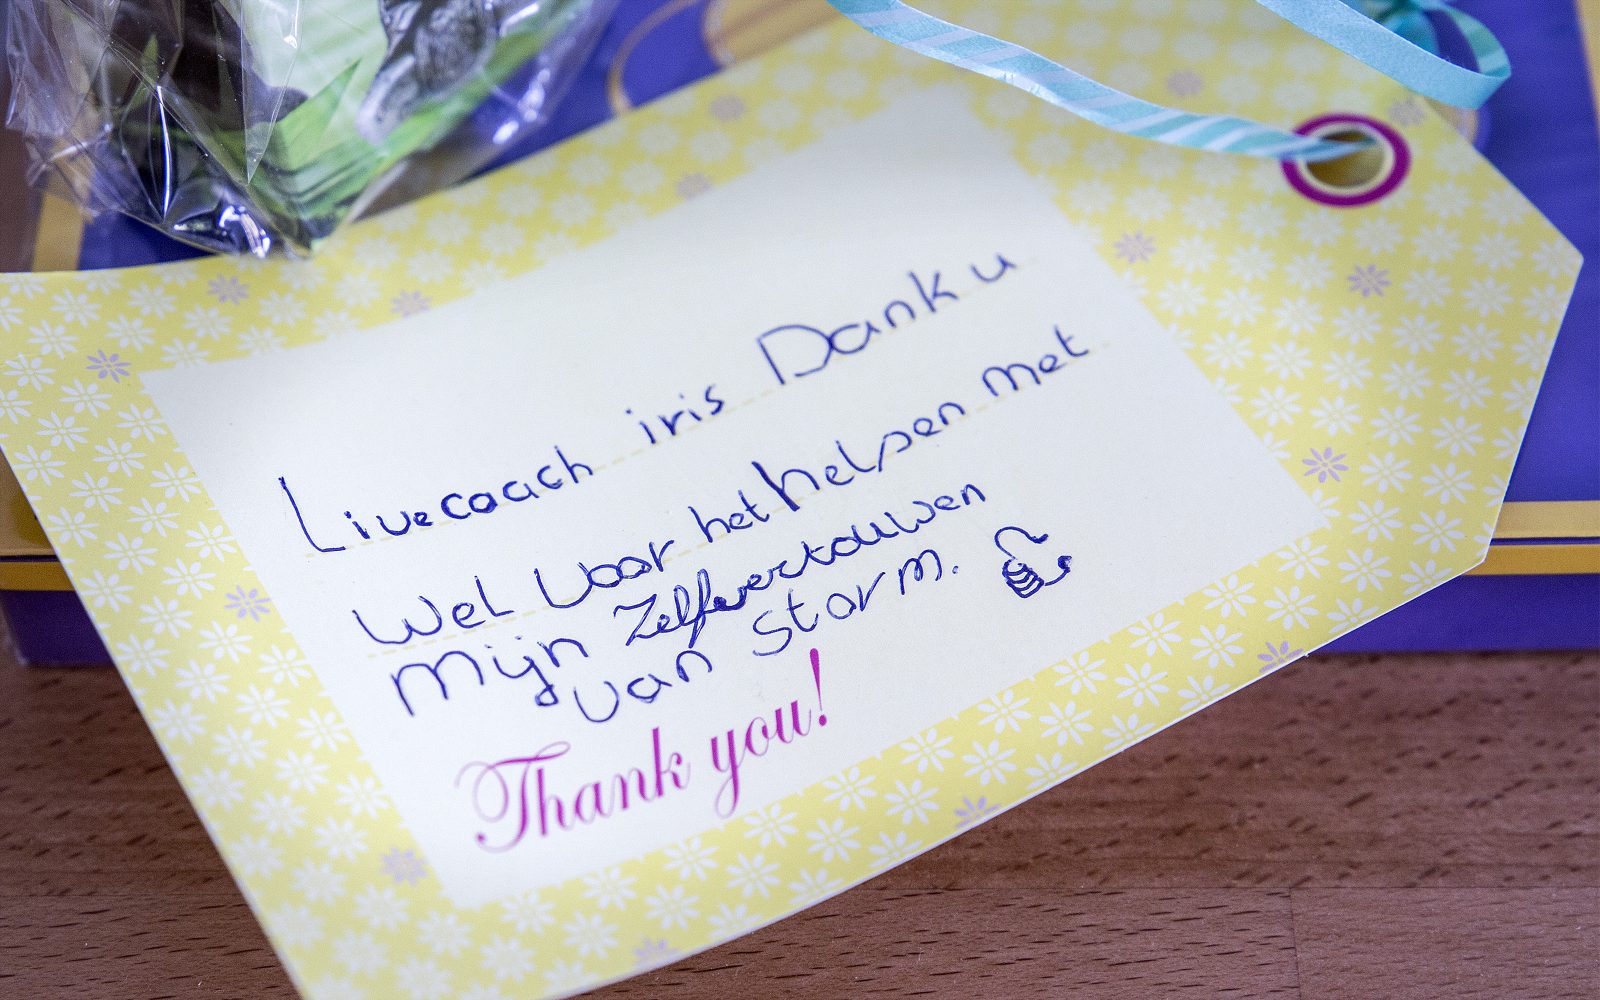 Livecoach iris Dank u
wel voor het helpen met
Mijn Zelfvertrouwen
van storm.
Thank you!